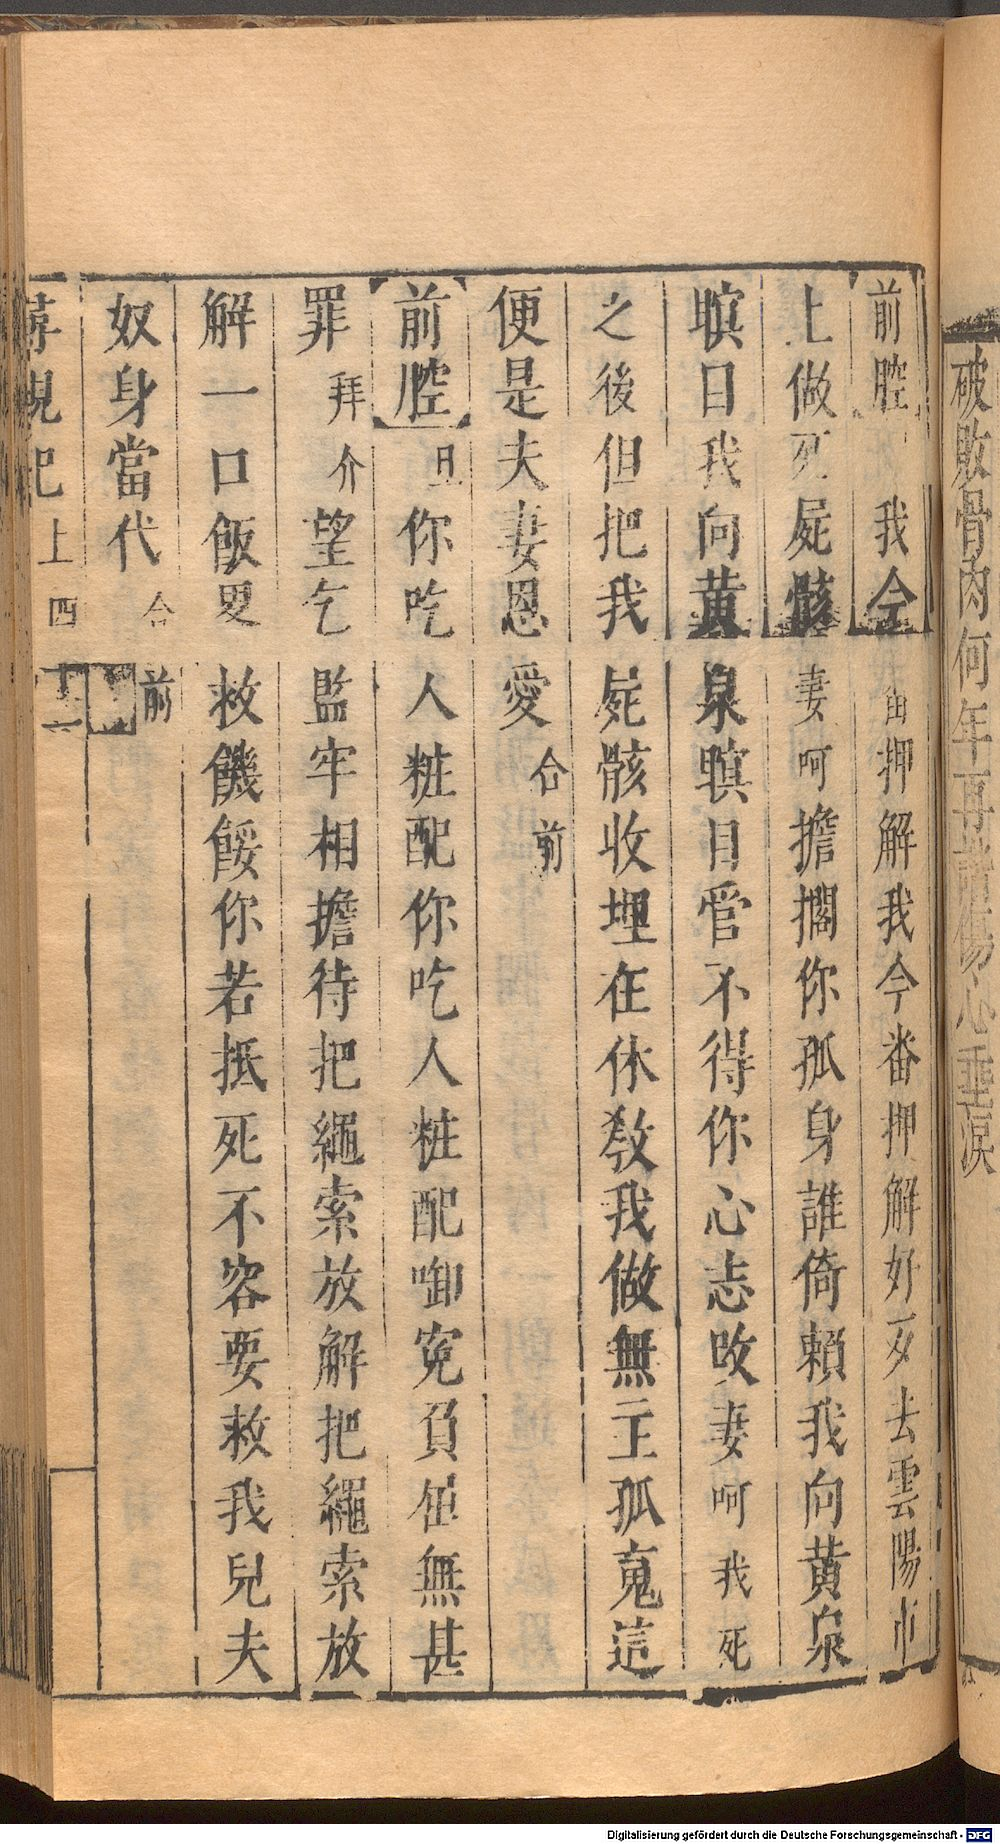 破敗骨肉何年再蓋傷心垂淚
前腔 我今番押解我今番押解好歹去雲陽市
上做死屍骸妻呵擔擱你孤身誰倚賴我向黃泉
瞑目我向黃泉瞑目管不得你心忐攺妻呵我死
之後但把我屍骸收埋在休教我做無主孤䰟這
便是夫妻恩愛合前
前腔 旦你吃人粧配你吃人粧配啣寃負屈無甚
罪拜介望乞監牢相擔待把繩索放解把繩索放
解一口飯要救饑餒你若抵死不容要救我兒夫
奴身當代合前
尋親記上 四十一
Digitalisierung gefördert durch die Deutsche Forschungsgemeinschaft - DFG